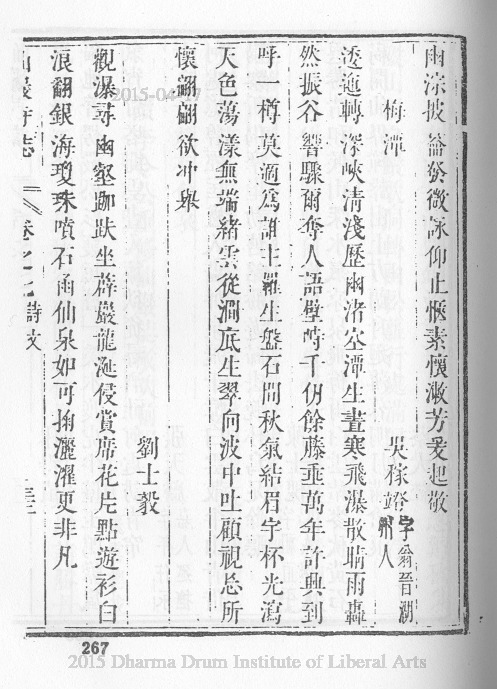 雨淙披發微詠仰止愜素懷漱芳爰起敬
梅潭　吳稼竳字翁晉湖州人
逶迤轉深峽清淺歷幽渚空潭生晝寒飛瀑散晴雨轟
然振谷響驟爾奪人語壁峙千仞餘藤垂萬年許興到
呼一樽莫適為誰主羅生盤石間秋氣結眉宇杯光瀉
天色蕩漾無端緒雲從澗底生翠向波中吐顧視忘所
懷翩翩欲冲舉
劉士毅
觀瀑尋幽壑跏趺坐薜巖龍涎侵賞席花片點遊衫白
浪翻銀海瓊珠噴石函仙泉如可掬灑濯更非凡
寺志　卷之七詩文
267
2015-04-17
2015 Dharma Drum Institute of Liberal Arts